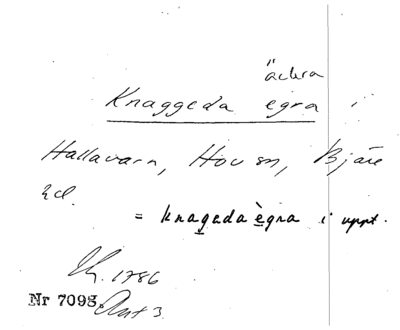 äckra
Knaggeda egra i
Hallavara, Hov sn, Bjäre
hd.
= knagedaègra i uppt.
1786
Nr 7098. Ant 3